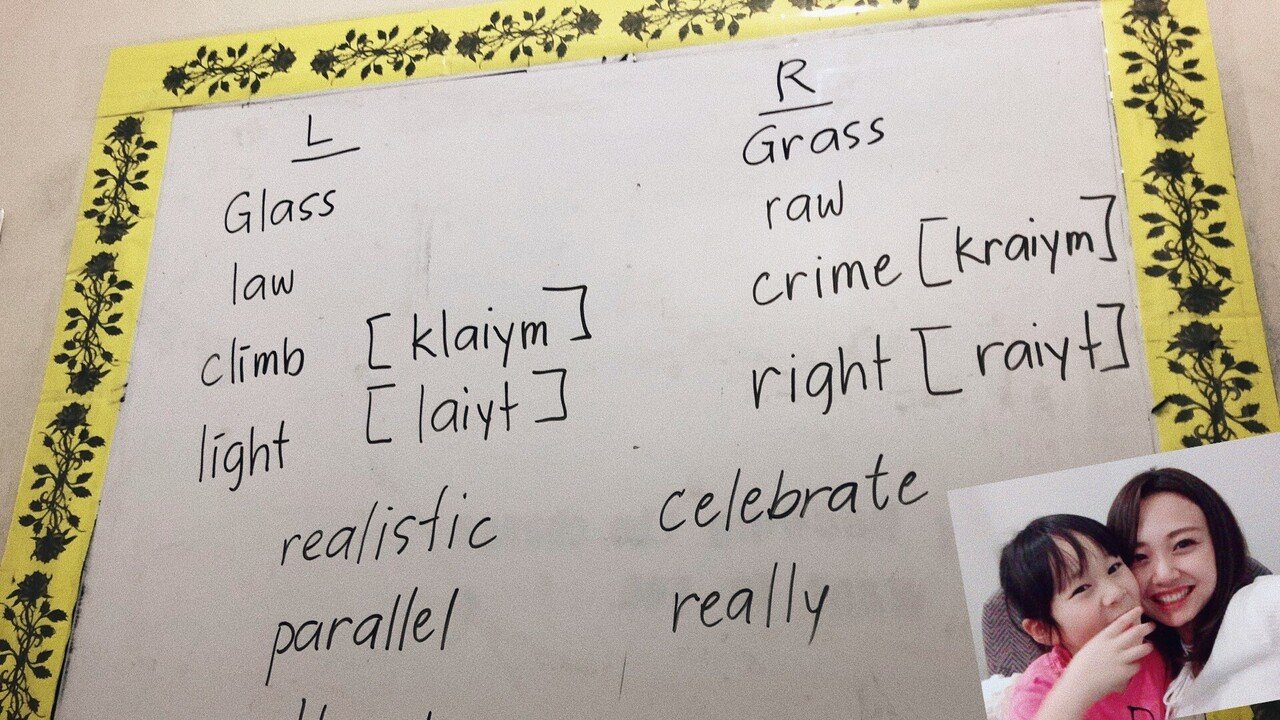 L
Glass
law
climb [klaiym]
light [laiyt]
R
Grass
raw
crime [kraiym]
right [raiyt]
realistic celebrate
parallel really